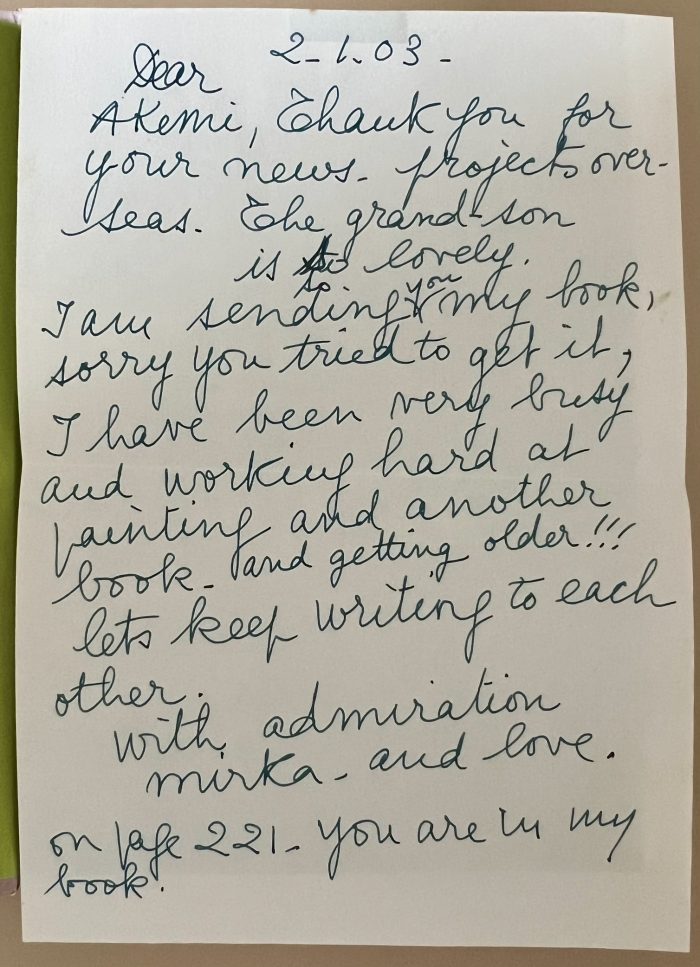 2-1.03-
Dear
Akemi, Thank you for
your news- projects over-
seas. The grand-son
is so lovely.
I am sending you my book,
sorry you tried to get it,
I have been very busy
and working hard at
painting and another
book- and getting older!!!
lets keep writing to each
other.
with admiration
mirka- and love.
on page 221- you are in my
book.